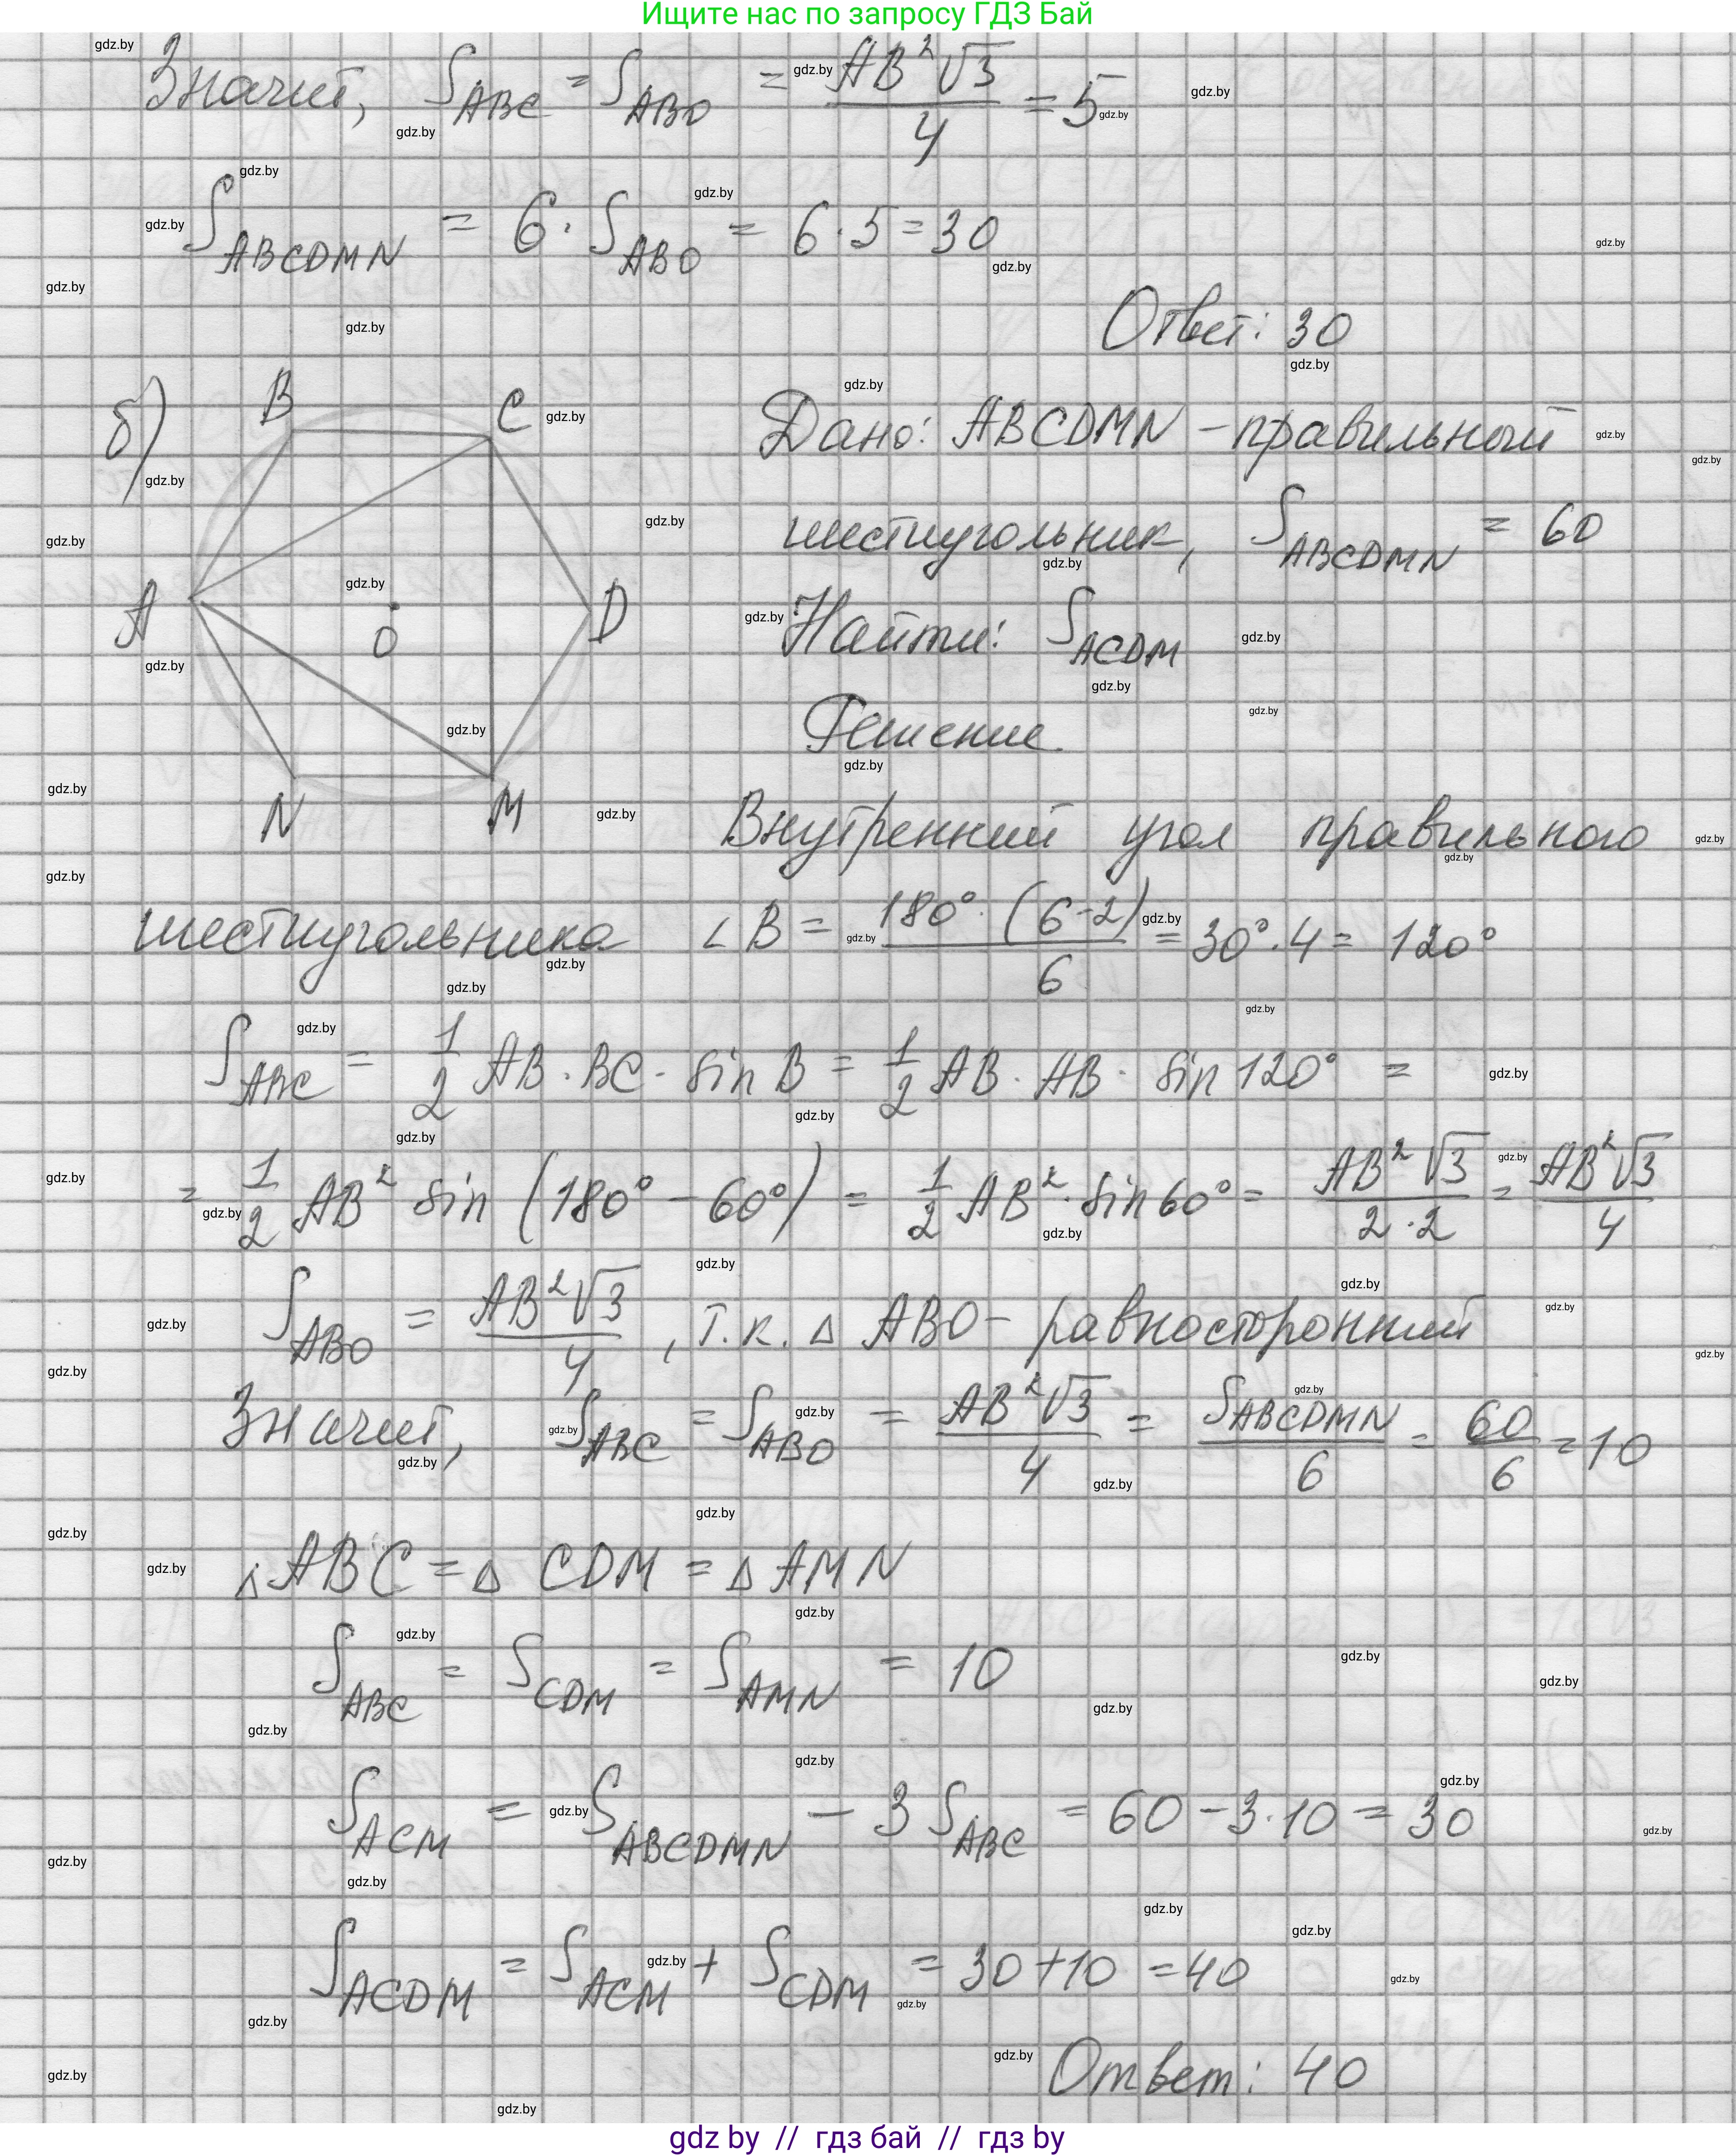 Ищите нас по запросу ГДЗ Бай
Значит, S_ABC = S_ABO = AB²√3/4 = 5
S_ABCDMN = 6 · S_ABO = 6 · 5 = 30
Ответ: 30
б)
B
C
A
O
D
N
M
Дано: ABCDMN – правильный
шестиугольник, S_ABCDMN = 60
Найти: S_ACDM
Решение
Внутренний угол правильного
шестиугольника ∠B = 180°·(6-2)/6 = 30°·4 = 120°
S_ABC = 1/2 AB · BC · sin B = 1/2 AB · AB · sin 120° =
= 1/2 AB² sin (180° – 60°) = 1/2 AB² · sin 60° = AB²√3/2·2 = AB²√3/4
S_ABO = AB²√3/4, т.к. △ ABO – равносторонний
Значит, S_ABC = S_ABO = AB²√3/4 = S_ABCDMN/6 = 60/6 = 10
△ABC = △ CDM = △ AMN
S_ABC = S_CDM = S_AMN = 10
S_ACM = S_ABCDMN – 3 S_ABC = 60 – 3·10 = 30
S_ACDM = S_ACM + S_CDM = 30 + 10 = 40
Ответ: 40
gdz by // гдз бай // гдз by